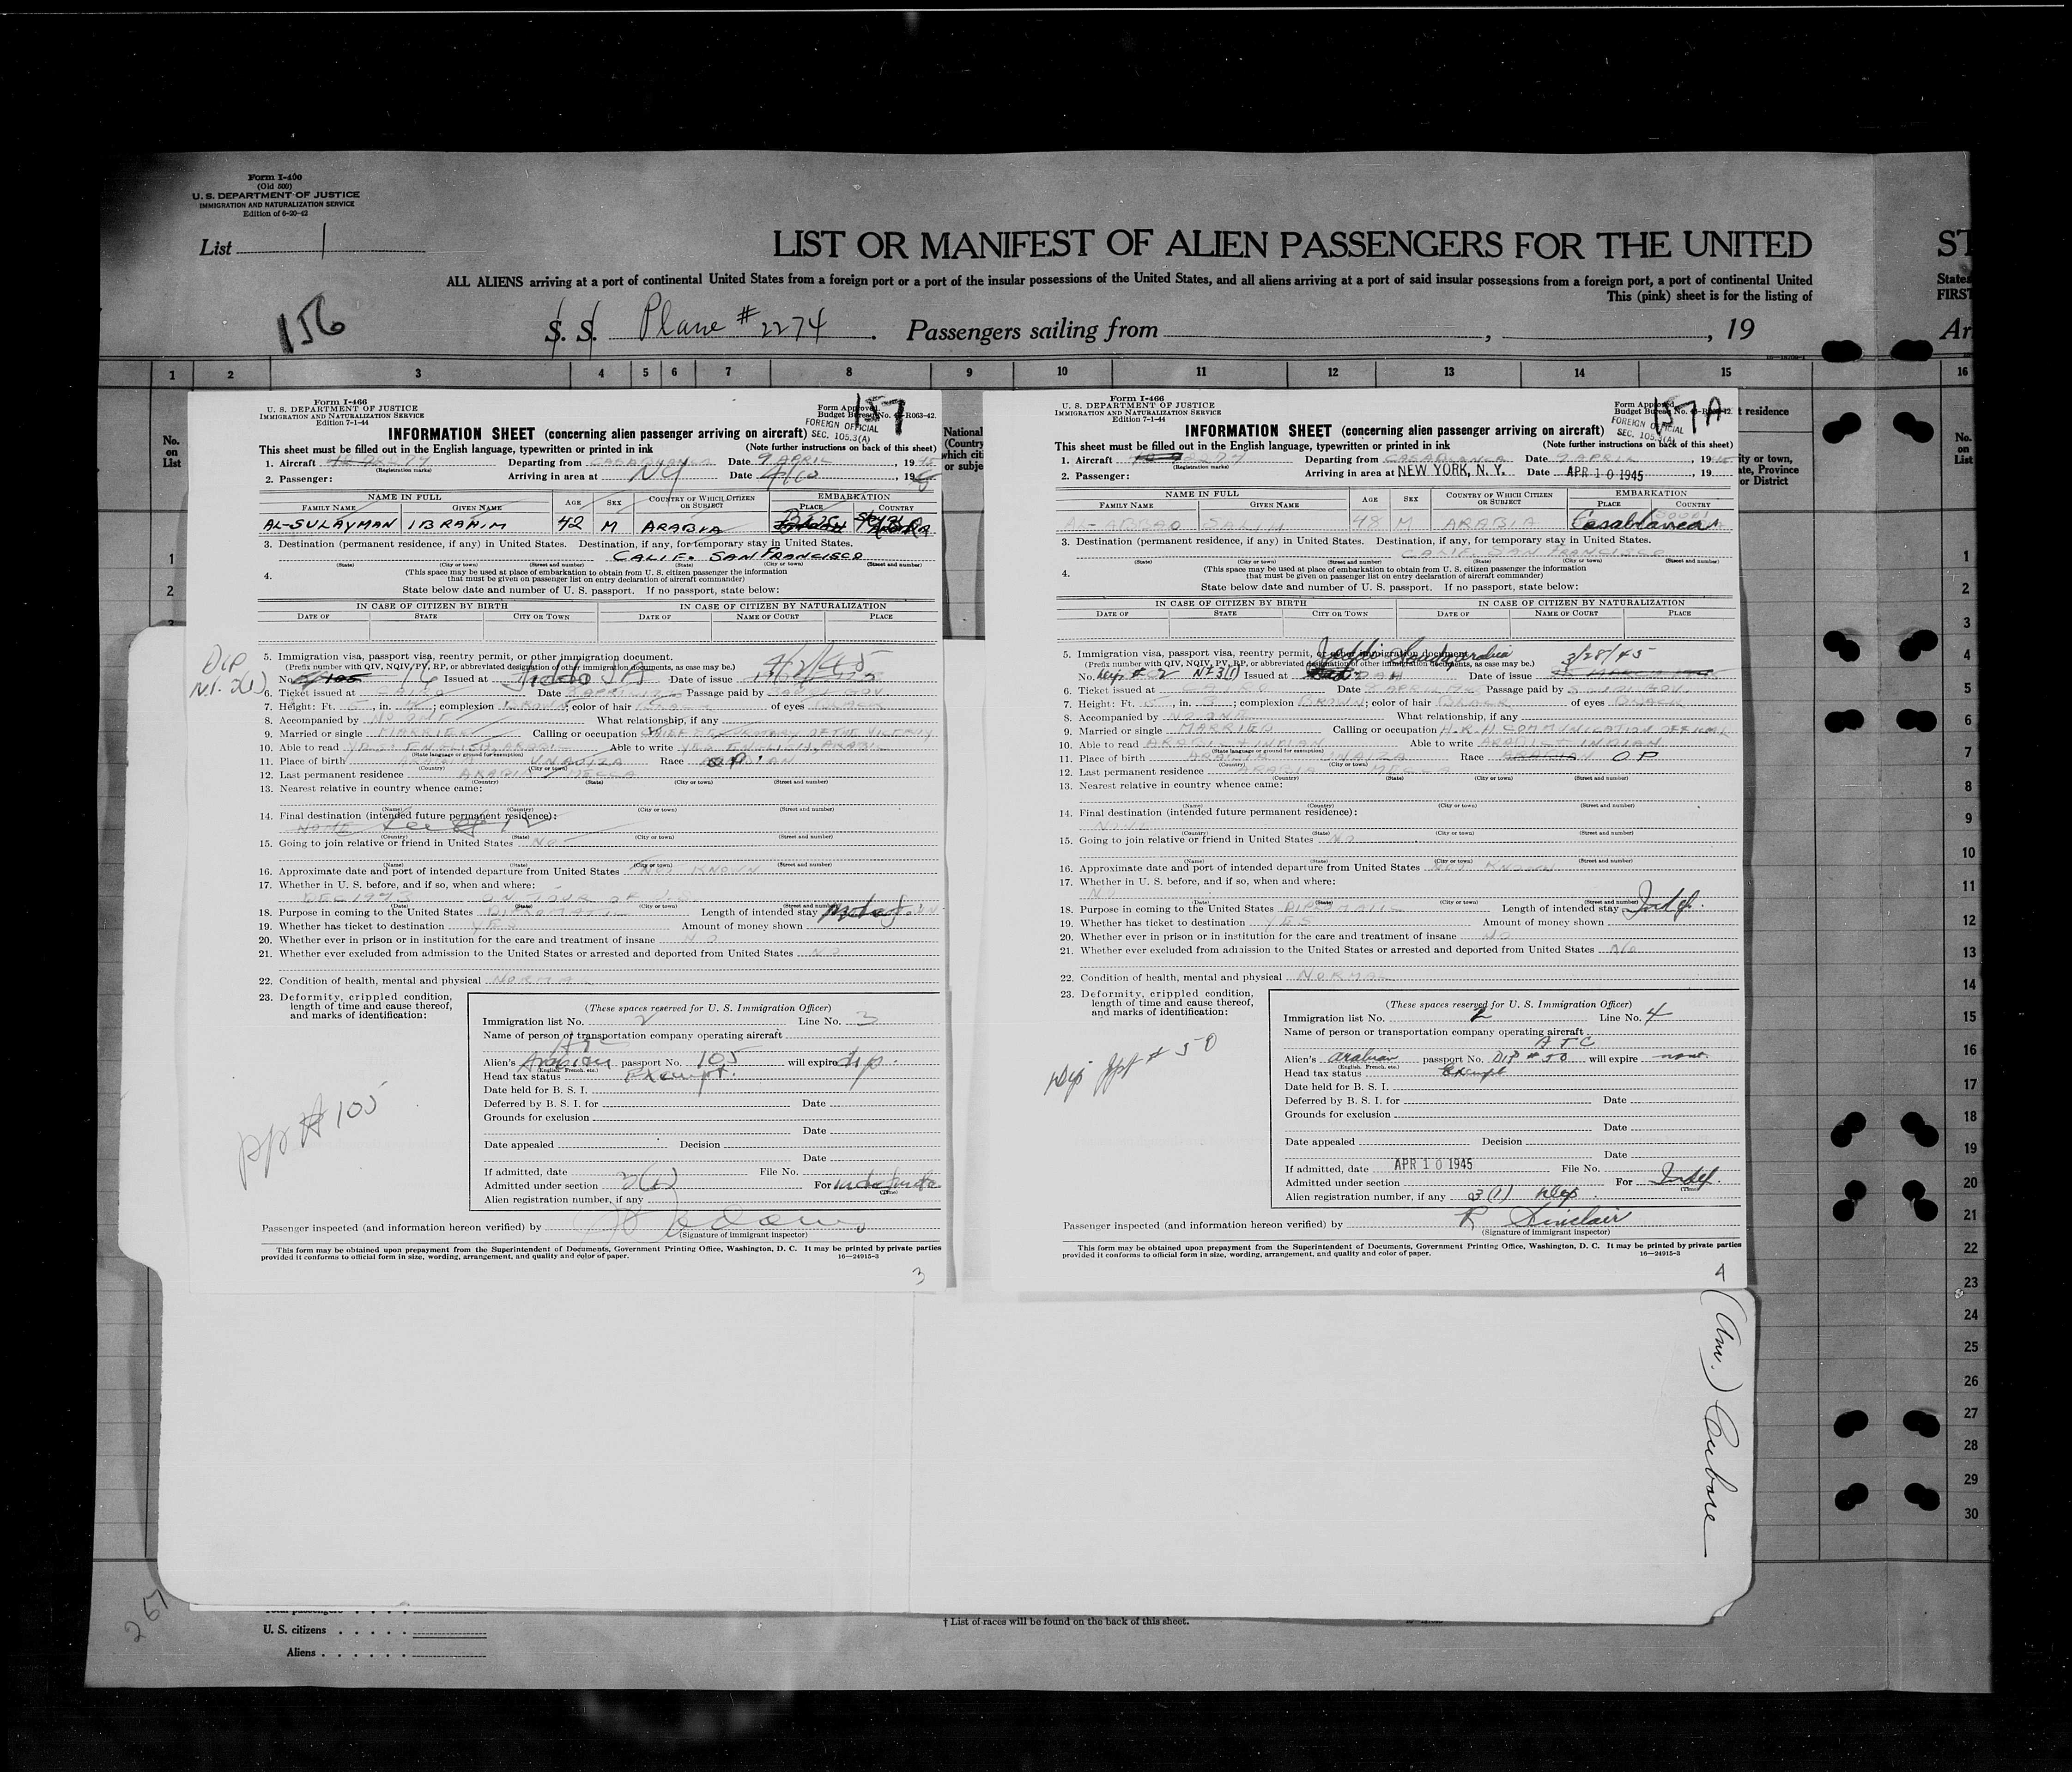 Form I-460
(Old 500)
U. S. DEPARTMENT OF JUSTICE
IMMIGRATION AND NATURALIZATION SERVICE
Edition of 6-20-42
List 1
LIST OR MANIFEST OF ALIEN PASSENGERS FOR THE UNITED
ST
ALL ALIENS arriving at a port of continental United States from a foreign port or a port of the insular possessions of the United States, and all aliens arriving at a port of said insular possessions from a foreign port, a port of continental United
States
This (pink) sheet is for the listing of
FIRST
156
S. S. Plane # 2274. Passengers sailing from , , 19
Ar
1 2 3 4 5 6 7 8 9 10 11 12 13 14 15 16
No. on List
Form I-466
U. S. DEPARTMENT OF JUSTICE
IMMIGRATION AND NATURALIZATION SERVICE
Edition 7-1-44
Form Approved.
Budget Bureau No. 43-R063-42.
157
FOREIGN OFFICIAL
SEC. 105.3(A)
INFORMATION SHEET (concerning alien passenger arriving on aircraft)
This sheet must be filled out in the English language, typewritten or printed in ink (Note further instructions on back of this sheet)
1. Aircraft 72274 Departing from CASABLANCA Date 9 APRIL, 1945
(Registration marks)
2. Passenger: Arriving in area at NY Date 4/10, 19
NAME IN FULL AGE SEX COUNTRY OF WHICH CITIZEN OR SUBJECT EMBARKATION
FAMILY NAME GIVEN NAME PLACE COUNTRY
AL-SULAYMAN IBRAHIM 42 M ARABIA
3. Destination (permanent residence, if any) in United States. Destination, if any, for temporary stay in United States.
CALIF. SAN FRANCISCO
(State) (City or town) (Street and number) (State) (City or town) (Street and number)
4. (This space may be used at place of embarkation to obtain from U. S. citizen passenger the information
that must be given on passenger list on entry declaration of aircraft commander)
State below date and number of U. S. passport. If no passport, state below:
IN CASE OF CITIZEN BY BIRTH IN CASE OF CITIZEN BY NATURALIZATION
DATE OF STATE CITY OR TOWN DATE OF NAME OF COURT PLACE
DIP
N.I. 3(1)
5. Immigration visa, passport visa, reentry permit, or other immigration document.
(Prefix number with QIV, NQIV, PV, RP, or abbreviated designation of other immigration documents, as case may be.) 4/2/45
No. 105 16 Issued at Jidda SA Date of issue
6. Ticket issued at CAIRO Date APRIL Passage paid by SAUDI GOV.
7. Height: Ft. 5, in. ; complexion BROWN; color of hair BLACK of eyes BLACK
8. Accompanied by NO ONE What relationship, if any
9. Married or single MARRIED Calling or occupation CHIEF SECRETARY OF THE VICEROY
10. Able to read YES ENGLISH, ARABIC Able to write YES ENGLISH, ARABIC
(State language or ground for exemption)
11. Place of birth ARABIA UNAIZA Race OP
(Country) (City or town)
12. Last permanent residence ARABIA MECCA
(Country) (State) (City or town)
13. Nearest relative in country whence came:
(Name) (Country) (City or town) (Street and number)
14. Final destination (intended future permanent residence):
NONE
(Country) (State) (City or town) (Street and number)
15. Going to join relative or friend in United States NO
(Name) (State) (City or town) (Street and number)
16. Approximate date and port of intended departure from United States NOT KNOWN
17. Whether in U. S. before, and if so, when and where:
DEC 1943 ON TOUR OF U.S.
(Date) (State) (City or town) (Street and number)
18. Purpose in coming to the United States DIPLOMATIC Length of intended stay Indef.
19. Whether has ticket to destination YES Amount of money shown
20. Whether ever in prison or in institution for the care and treatment of insane NO
21. Whether ever excluded from admission to the United States or arrested and deported from United States NO
22. Condition of health, mental and physical NORMAL
23. Deformity, crippled condition,
length of time and cause thereof,
and marks of identification:
pp # 105
(These spaces reserved for U. S. Immigration Officer)
Immigration list No. 2 Line No. 3
Name of person or transportation company operating aircraft
ATC
Alien's Arabian passport No. 105 will expire dip.
(English, French, etc.)
Head tax status Exempt.
Date held for B. S. I.
Deferred by B. S. I. for Date
Grounds for exclusion
Date
Date appealed Decision
Date
If admitted, date File No.
Admitted under section 3(1) For indefinite
(Time)
Alien registration number, if any
Passenger inspected (and information hereon verified) by
(Signature of immigrant inspector)
This form may be obtained upon prepayment from the Superintendent of Documents, Government Printing Office, Washington, D. C. It may be printed by private parties
provided it conforms to official form in size, wording, arrangement, and quality and color of paper. 16—24915-3
3
National
(Country
which cit
or subje
Form I-466
U. S. DEPARTMENT OF JUSTICE
IMMIGRATION AND NATURALIZATION SERVICE
Edition 7-1-44
Form Approved.
Budget Bureau No. 43-R063-42.
157A
FOREIGN OFFICIAL
SEC. 105.3(A)
INFORMATION SHEET (concerning alien passenger arriving on aircraft)
This sheet must be filled out in the English language, typewritten or printed in ink (Note further instructions on back of this sheet)
1. Aircraft 2274 Departing from CASABLANCA Date 9 APRIL, 1945
(Registration marks)
2. Passenger: Arriving in area at NEW YORK, N. Y. Date APR 10 1945, 19
NAME IN FULL AGE SEX COUNTRY OF WHICH CITIZEN OR SUBJECT EMBARKATION
FAMILY NAME GIVEN NAME PLACE COUNTRY
48 M ARABIA Casablanca
3. Destination (permanent residence, if any) in United States. Destination, if any, for temporary stay in United States.
CALIF. SAN FRANCISCO
(State) (City or town) (Street and number) (State) (City or town) (Street and number)
4. (This space may be used at place of embarkation to obtain from U. S. citizen passenger the information
that must be given on passenger list on entry declaration of aircraft commander)
State below date and number of U. S. passport. If no passport, state below:
IN CASE OF CITIZEN BY BIRTH IN CASE OF CITIZEN BY NATURALIZATION
DATE OF STATE CITY OR TOWN DATE OF NAME OF COURT PLACE
5. Immigration visa, passport visa, reentry permit, or other immigration document.
Saudi Arabia 3/28/45
(Prefix number with QIV, NQIV, PV, RP, or abbreviated designation of other immigration documents, as case may be.)
No. Dip. # 2 NI 3(1) Issued at Date of issue
6. Ticket issued at CAIRO Date APRIL Passage paid by SAUDI GOV.
7. Height: Ft. 5, in. 3; complexion BROWN; color of hair BLACK of eyes BLACK
8. Accompanied by NO ONE What relationship, if any
9. Married or single MARRIED Calling or occupation H.R.H COMMUNICATION OFFICIAL
10. Able to read ARABIC & INDIAN Able to write ARABIC & INDIAN
(State language or ground for exemption)
11. Place of birth ARABIA UNAIZA Race OP
(Country) (City or town)
12. Last permanent residence ARABIA MECCA
(Country) (State) (City or town)
13. Nearest relative in country whence came:
(Name) (Country) (City or town) (Street and number)
14. Final destination (intended future permanent residence):
NONE
(Country) (State) (City or town) (Street and number)
15. Going to join relative or friend in United States NO
(Name) (State) (City or town) (Street and number)
16. Approximate date and port of intended departure from United States NOT KNOWN
17. Whether in U. S. before, and if so, when and where:
NO
(Date) (State) (City or town) (Street and number)
18. Purpose in coming to the United States DIPLOMATIC Length of intended stay Indef.
19. Whether has ticket to destination YES Amount of money shown
20. Whether ever in prison or in institution for the care and treatment of insane NO
21. Whether ever excluded from admission to the United States or arrested and deported from United States No
22. Condition of health, mental and physical NORMAL
23. Deformity, crippled condition,
length of time and cause thereof,
and marks of identification:
Dip ppt # 50
(These spaces reserved for U. S. Immigration Officer)
Immigration list No. 2 Line No. 4
Name of person or transportation company operating aircraft
ATC
Alien's Arabian passport No. DIP # 50 will expire none
(English, French, etc.)
Head tax status Exempt
Date held for B. S. I.
Deferred by B. S. I. for Date
Grounds for exclusion
Date
Date appealed Decision
Date
If admitted, date APR 10 1945 File No.
Admitted under section For Indef.
(Time)
Alien registration number, if any 3(1) Dip.
Passenger inspected (and information hereon verified) by R Sinclair
(Signature of immigrant inspector)
This form may be obtained upon prepayment from the Superintendent of Documents, Government Printing Office, Washington, D. C. It may be printed by private parties
provided it conforms to official form in size, wording, arrangement, and quality and color of paper. 16—24915-3
4
t residence
ity or town,
ate, Province
or District
No. on List
1
2
3
4
5
6
7
8
9
10
11
12
13
14
15
16
17
18
19
20
21
22
23
24
25
26
27
28
29
30
267
U. S. citizens
Aliens
† List of races will be found on the back of this sheet.